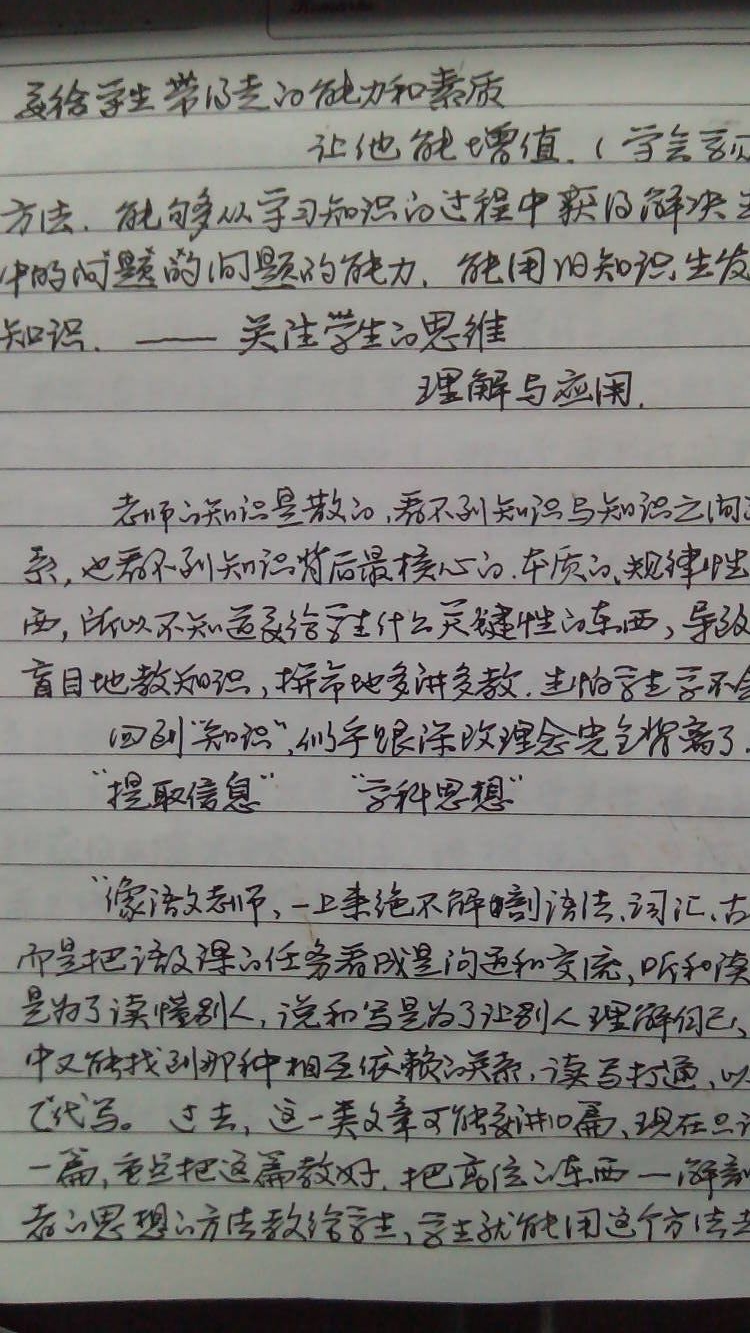 教给学生带得走的能力和素质
让他能增值.(学会学习
方法.能够从学习知识的过程中获得解决生
中的问题的问题的能力.能用旧知识生发
知识.——关注学生的思维
理解与应用.
老师的知识是散的,看不到知识与知识之间
系,也看不到知识背后最核心的.本质的、规律性
西,所以不知道教给学生什么关键性的东西,导致
盲目地教知识,拼命地多讲多教.生怕学生学不会
回到“知识”,似乎跟深改理念完全背离了.
“提取信息” “学科思想”
“像语文老师,一上来绝不解剖语法、词汇、古
而是把语文课的任务看成是沟通和交流,听和读
是为了读懂别人,说和写是为了让别人理解自己、
中又能找到那种相互依赖的关系,读写打通,以
代写。过去,这一类文章可能要讲10篇、现在只讲
一篇,重点把这篇教好.把高位的东西—解剖
者的思想的方法教给学生,学生就能用这个方法去